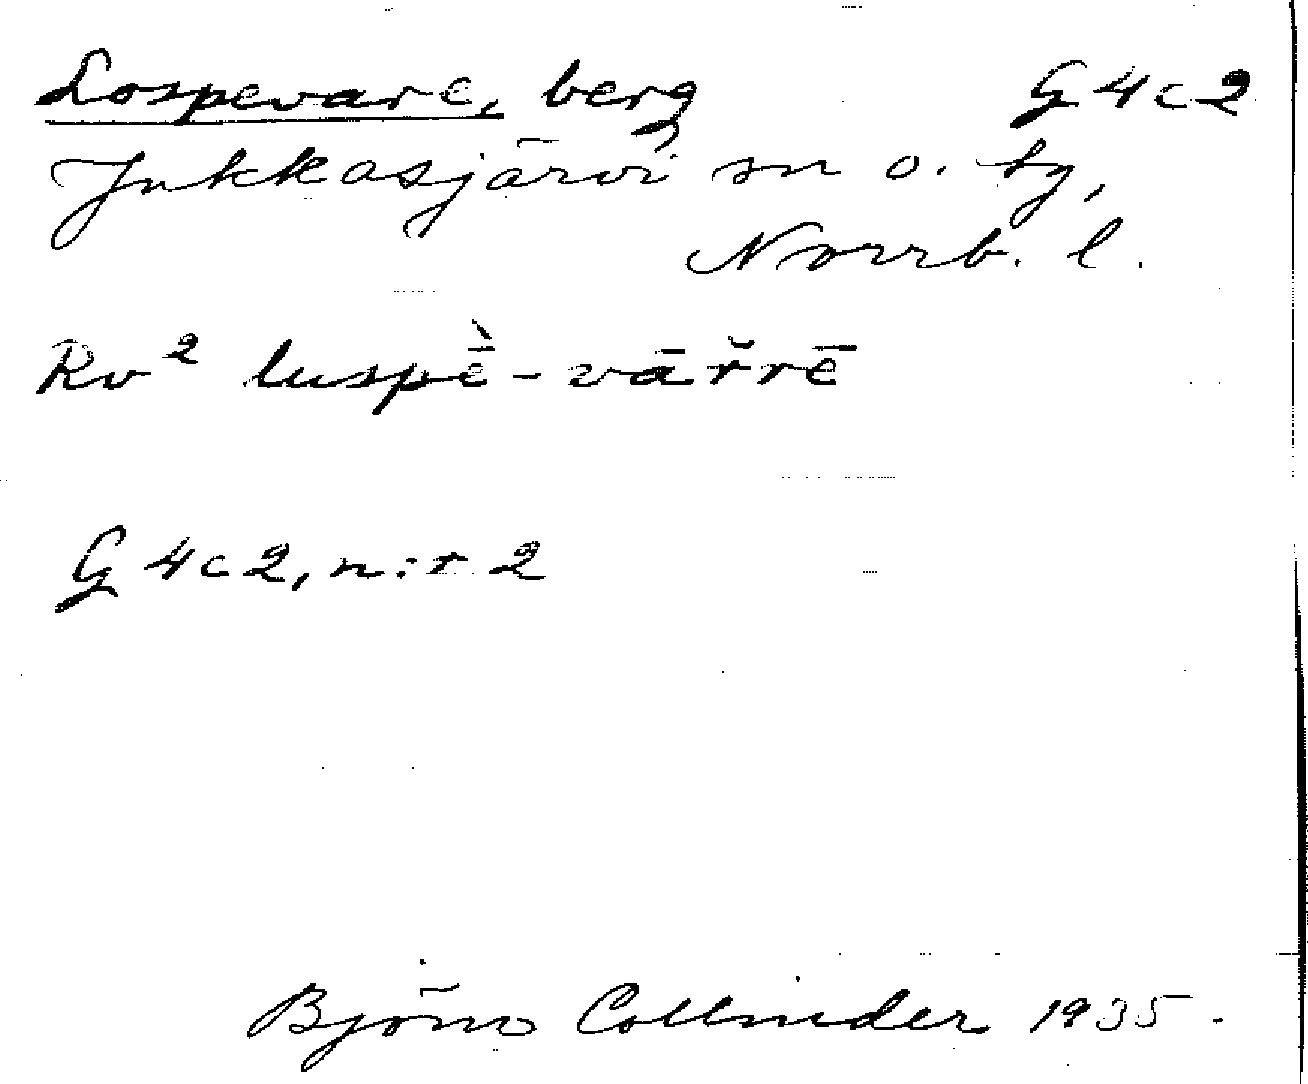 Lospevare, berg G4c2
Jukkasjärvi sn o. tg,
Norrb. l.
Rv² luspḕ-vār̆rē
G4c2, n:r 2
Björn Collinder 1935.